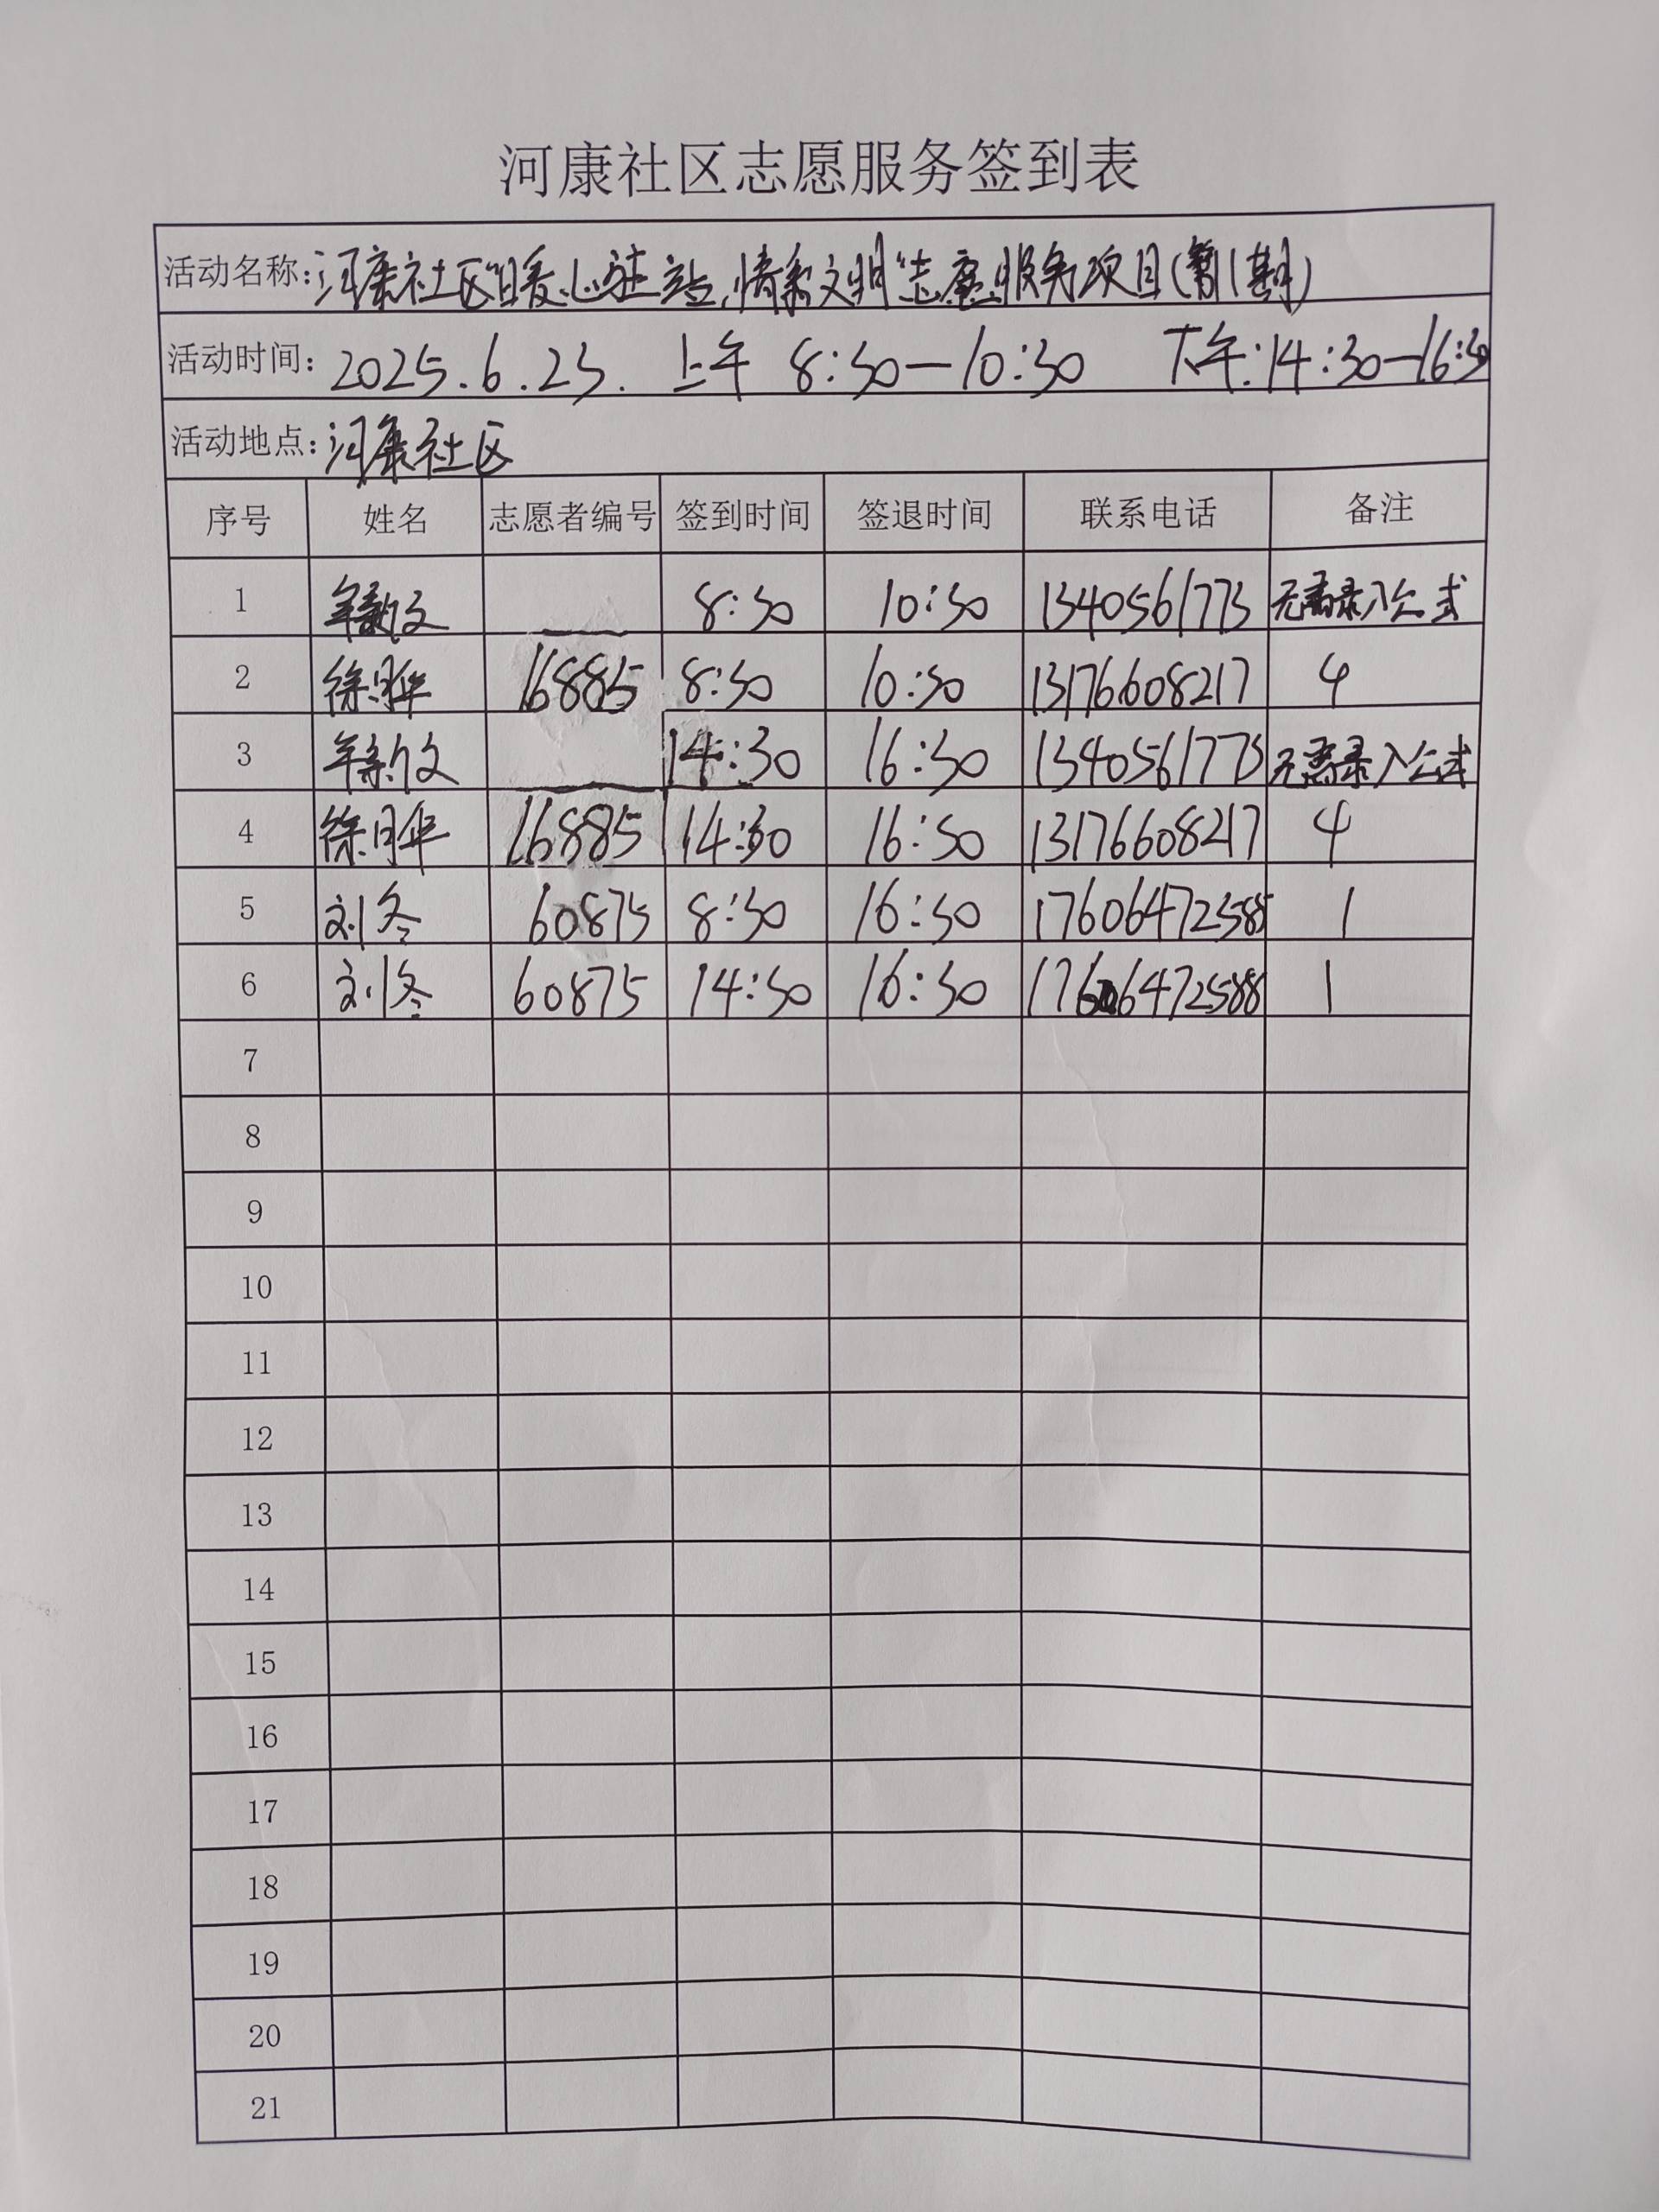 河康社区志愿服务签到表
活动名称:河康社区"暖心驻站,情系文明"志愿服务项目(第1期)
活动时间: 2025.6.23. 上午 8:30—10:30 下午:14:30—16:30
活动地点:河康社区
序号 姓名 志愿者编号 签到时间 签退时间 联系电话 备注
1 8:30 10:30 1340561773 无需录入公式
2 徐月华 16885 8:30 10:30 13176608217 4
3 14:30 16:30 1340561773 无需录入公式
4 徐月华 16885 14:30 16:30 13176608217 4
5 刘冬 60875 8:30 16:30 17606472588 1
6 刘冬 60875 14:30 16:30 17606472588 1
7
8
9
10
11
12
13
14
15
16
17
18
19
20
21